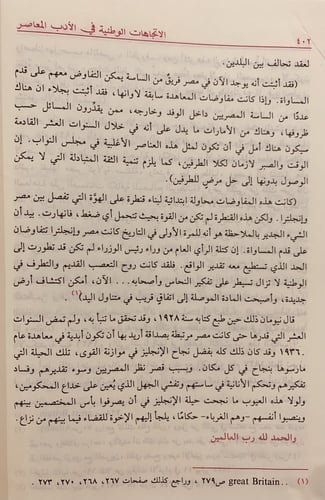 ٤٠٢ الاتجاهات الوطنية في الأدب المعاصر
لعقد تحالف بين البلدين.
(فقد أثبتت أنه يوجد الآن في مصر فريق من الساسة يمكن التفاوض معهم على قدم
المساواة. وإذا كانت مفاوضات المعاهدة سابقة لأوانها، فقد أثبتت بجلاء ان هناك
عددًا من الساسة المصريين داخل الوفد وخارجه، ممن يقدّرون المسائل حسب
ظروفها، وهناك من الأمارات ما يدل على أنه في خلال السنوات العشر القادمة
سيكون هناك أمل في أن تكون لمثل هذه العناصر الأغلبية في مجلس النواب. إن
الوقت والصبر لازمان لكلا الطرفين، كما يلزم تنمية الثقة المتبادلة التي لا يمكن
الوصول بدونها إلى حل مرضٍ للطرفين).
(كانت هذه المفاوضات محاولة ابتدائية لبناء قنطرة على الهوَّة التي تفصل بين مصر
وإنجلترا. ولكن هذه القنطرة لم تكن من القوة بحيث تتحمل أي ضغط، فانهارت. بيد أن
الشيء الجدير بالملاحظة هو أنه للمرة الأولى في التاريخ كانت مصر وإنجلترا تتفاوضان
على قدم المساواة. إن كتلة الرأي العام من وراء رئيس الوزراء لم تكن قد تطورت إلى
الحد الذي تستطيع معه تقدير الواقع. فلقد كانت روح التعصب القديم والتطرف في
الوطنية لا تزال تسيطر على تفكير النحاس وأصحابه... الآن، أمكن اكتشاف أرض
جديدة، وأصبحت المادة الموصلة إلى اتفاق قريب في متناول اليد)(١).
قال نيومان ذلك حين طبع كتابه سنة ١٩٢٨، وقد تحقق ما تنبأ به، ولم تمض السنوات
العشر التي قدرها حتى كانت مصر مرتبطة بصداقة أريد بها أن تكون أبدية في معاهدة عام
١٩٣٦. وقد كان ذلك كله بفضل نجاح الإنجليز في موازنة القوى، تلك الحيلة التي
مارسوها بنجاح في كل مكان. وبسبب قصر نظر المصريين وسوء تقديرهم وفساد
تفكيرهم وتحكم الأنانية في ساستهم وتفشي الجهل الذي يُعين على خداع المحكومين،
ولولا هذه العيوب ما نجحت حيلة الإنجليز في أن يصرفوا بأس المختصمين بينهم
وينصبوا أنفسهم -وهم الغرباء- حكامًا، يلجأ إليهم الإخوة للقضاء فيما بينهم من نزاع.
والحمد لله رب العالمين
(١) great Britain.. ص٢٧٩، وراجع كذلك صفحات ٢٦٧، ٢٦٨، ٢٧٠، ٢٧٣.